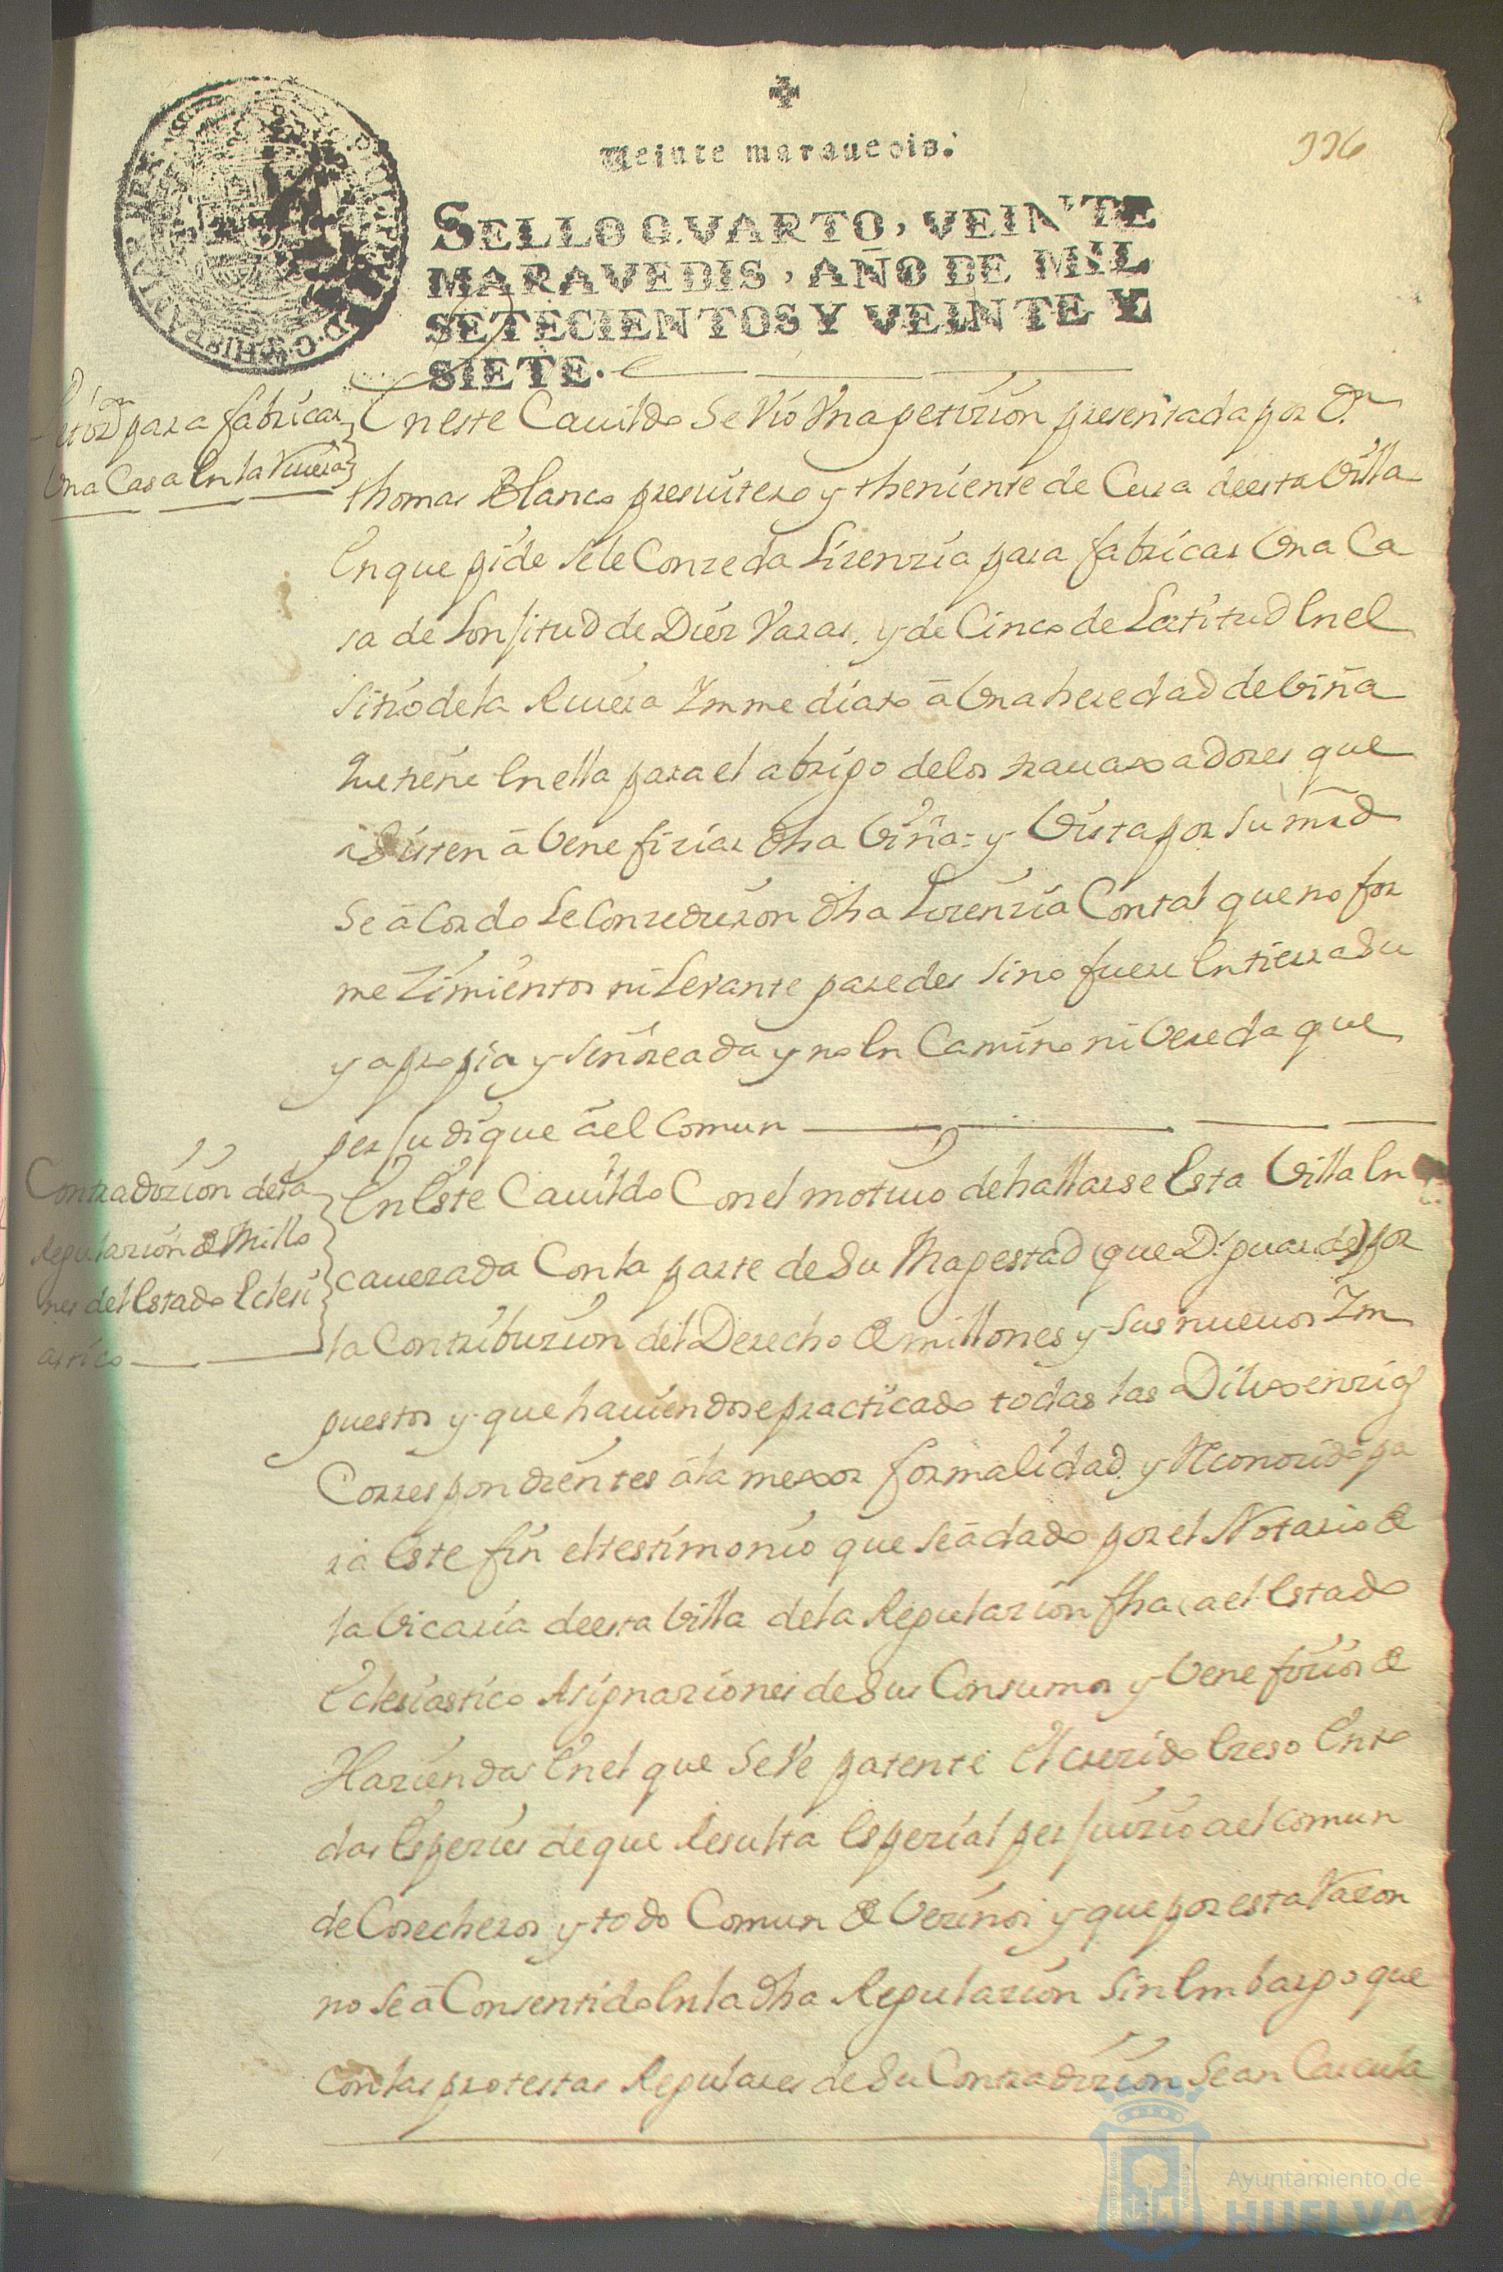 Veinte marauedis.
336
SELLO QVARTO, VEINTE
MARAVEDIS, AÑO DE MIL
SETECIENTOS Y VEINTE Y
SIETE.
para fabricar
Vna Casa En la Riuera
En este Cauildo se Vio Vna petizion presentada por Dn
thomas Blanco presuitero y theniente de Cura de esta Villa
En que pide se le Conzeda Lizenzia para fabricar Vna Ca
sa de Lonjitud de Diez Varas, y de Cinco de Latitud En el
sitio de la Riuera Immediato â Vna heredad de Viña
que tiene En ella para el abrigo de los trauaxadores que
asisten â Venefiziar dha Viña: y Vista por su mrd
Se âcordo Le Conzedieron dha Lizenzia Con tal que no for
me Zimientos ni Levante paredes sino fuere En tierra Su
ya propia y señoreada y no En Camino ni Vereda que
perjudique âel Comun
Contradizion de la
Regulazion de Millo
nes del Estado Eclesi
astico
En Este Cauildo Con el motiuo de hallarse Esta Villa En
cauezada Con la parte de Su Magestad (que Ds. guarde) por
la Contribuzion del Derecho de millones y sus nueuos Im
puestos y que hauiendose practicado todas las Dilixenzias
Correspondientes âla mexor formalidad y Reconozido pa
ra Este fin el testimonio que se âdado por el Notario de
la Vicaria de esta Villa de la Regulazion fha a el Estado
Eclesiastico Asignaziones de Sus Consumos y Venefizios de
Haziendas En el que Se Ve patente El crezido Exeso En to
das Espezies de que Resulta Espezial perjuizio a el comun
de Cosecheros y todo Comun de Vezinos y que por esta Razon
no Se â Consentido En la dha Regulazion Sin Embargo que
con las protestas Regulares de Su Contradizion Sean Cauculado
Ayuntamiento de
HUELVA